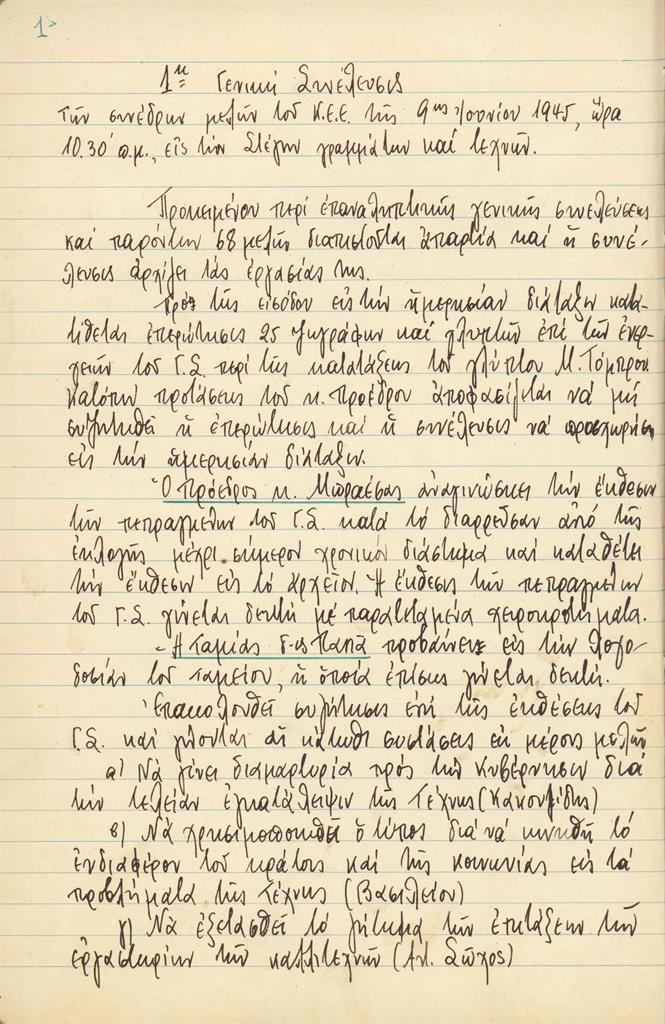 1>
1η Γενική Συνέλευσις
Τῶν συνέδρων μελῶν τοῦ Κ.Ε.Ε. τῆς 9ης Ἰουνίου 1945, ὥρα
10.30' π.μ., εἰς τὴν Στέγην γραμμάτων καὶ τεχνῶν.
Προκειμένου περὶ ἐπαναληπτικῆς γενικῆς συνελεύσεως
καὶ παρόντων 68 μελῶν διαπιστοῦται ἀπαρτία καὶ ἡ συνέ-
λευσις ἀρχίζει τὰς ἐργασίας της.
Πρὸ τῆς εἰσόδου εἰς τὴν ἡμερησίαν διάταξιν κατα-
τίθεται ἐπερώτησις 25 ζωγράφων καὶ γλυπτῶν ἐπὶ τῶν ἐνερ-
γειῶν τοῦ Γ.Σ. περὶ τῆς κατατάξεως τοῦ γλύπτου Μ. Τόμπρου
κατόπιν προτάσεως τοῦ κ. προέδρου ἀποφασίζεται νὰ μὴ
συζητηθεῖ ἡ ἐπερώτησις καὶ ἡ συνέλευσις νὰ προχωρήση
εἰς τὴν ἡμερησίαν διάταξιν.
Ὁ πρόεδρος κ. Μπραέσας ἀναγινώσκει τὴν ἔκθεσιν
τῶν πεπραγμένων τοῦ Γ.Σ. κατὰ τὸ διαρρεῦσαν ἀπὸ τῆς
ἐκλογῆς μέχρι σήμερον χρονικὸν διάστημα καὶ καταθέτει
τὴν ἔκθεσιν εἰς τὸ ἀρχεῖον. Ἡ ἔκθεσις τῶν πεπραγμένων
τοῦ Γ.Σ. γίνεται δεκτὴ μὲ παρατεταμένα χειροκροτήματα.
- Ἡ Ταμίας δ-ς Παπᾶ προβαίνει εἰς τὴν λογο-
δοσίαν τοῦ ταμείου, ἡ ὁποία ἐπίσης γίνεται δεκτή.
Ἐπακολουθεῖ συζήτησις ἐπὶ τῆς ἐκθέσεως τοῦ
Γ.Σ. καὶ γίνονται αἱ κάτωθι συστάσεις ἐκ μέρους μελῶν
α) Νὰ γίνει διαμαρτυρία πρὸς τὴν Κυβέρνησιν διὰ
τὴν τελείαν ἐγκατάλειψιν τῆς Τέχνης (Κακουλίδης)
β) Νὰ χρησιμοποιηθεῖ ὁ τύπος διὰ νὰ κινηθῆ τὸ
ἐνδιαφέρον τοῦ κράτους καὶ τῆς κοινωνίας εἰς τὰ
προβλήματα τῆς Τέχνης (Βασιλείου)
γ) Νὰ ἐξετασθεῖ τὸ ζήτημα τῶν ἐπιτάξεων τῶν
ἐργαστηρίων τῶν καλλιτεχνῶν (Αν. Σῶχος)